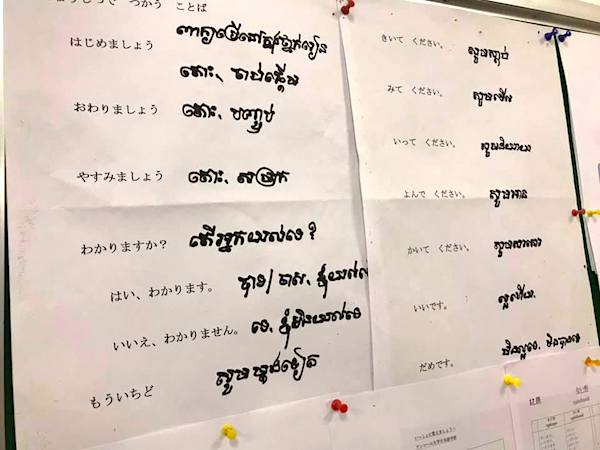 つかう ことば
ពាក្យប្រើនៅក្នុងថ្នាក់រៀន
はじめましょう តោះ, ចាប់ផ្ដើម
おわりましょう តោះ, បញ្ចប់
やすみましょう តោះ, សម្រាក
わかりますか? តើអ្នកយល់ទេ?
はい、わかります。 បាទ/ចាស, ខ្ញុំយល់
いいえ、わかりません。 ទេ, ខ្ញុំមិនយល់ទេ
もういちど សូមម្ដងទៀត
きいて ください។ សូមស្ដាប់
みて ください。 សូមមើល
いって ください。 សូមនិយាយ
よんで ください。 សូមអាន
かいて ください。 សូមសរសេរ
いいです。 ល្អហើយ.
だめです。 មិនល្អទេ, មិនបានទេ
17課